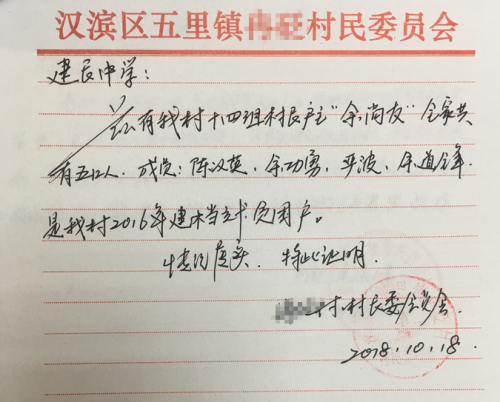 汉滨区五里镇村民委员会
建民中学：
兹有我村十四组村民户主"余尚友"全家共
有五口人．成员：陈汉英、余功勇、平波、余道锋．
是我村2016年建档立卡贫困户。
情况属实．特此证明．
村村民委员会．
2018.10.18.